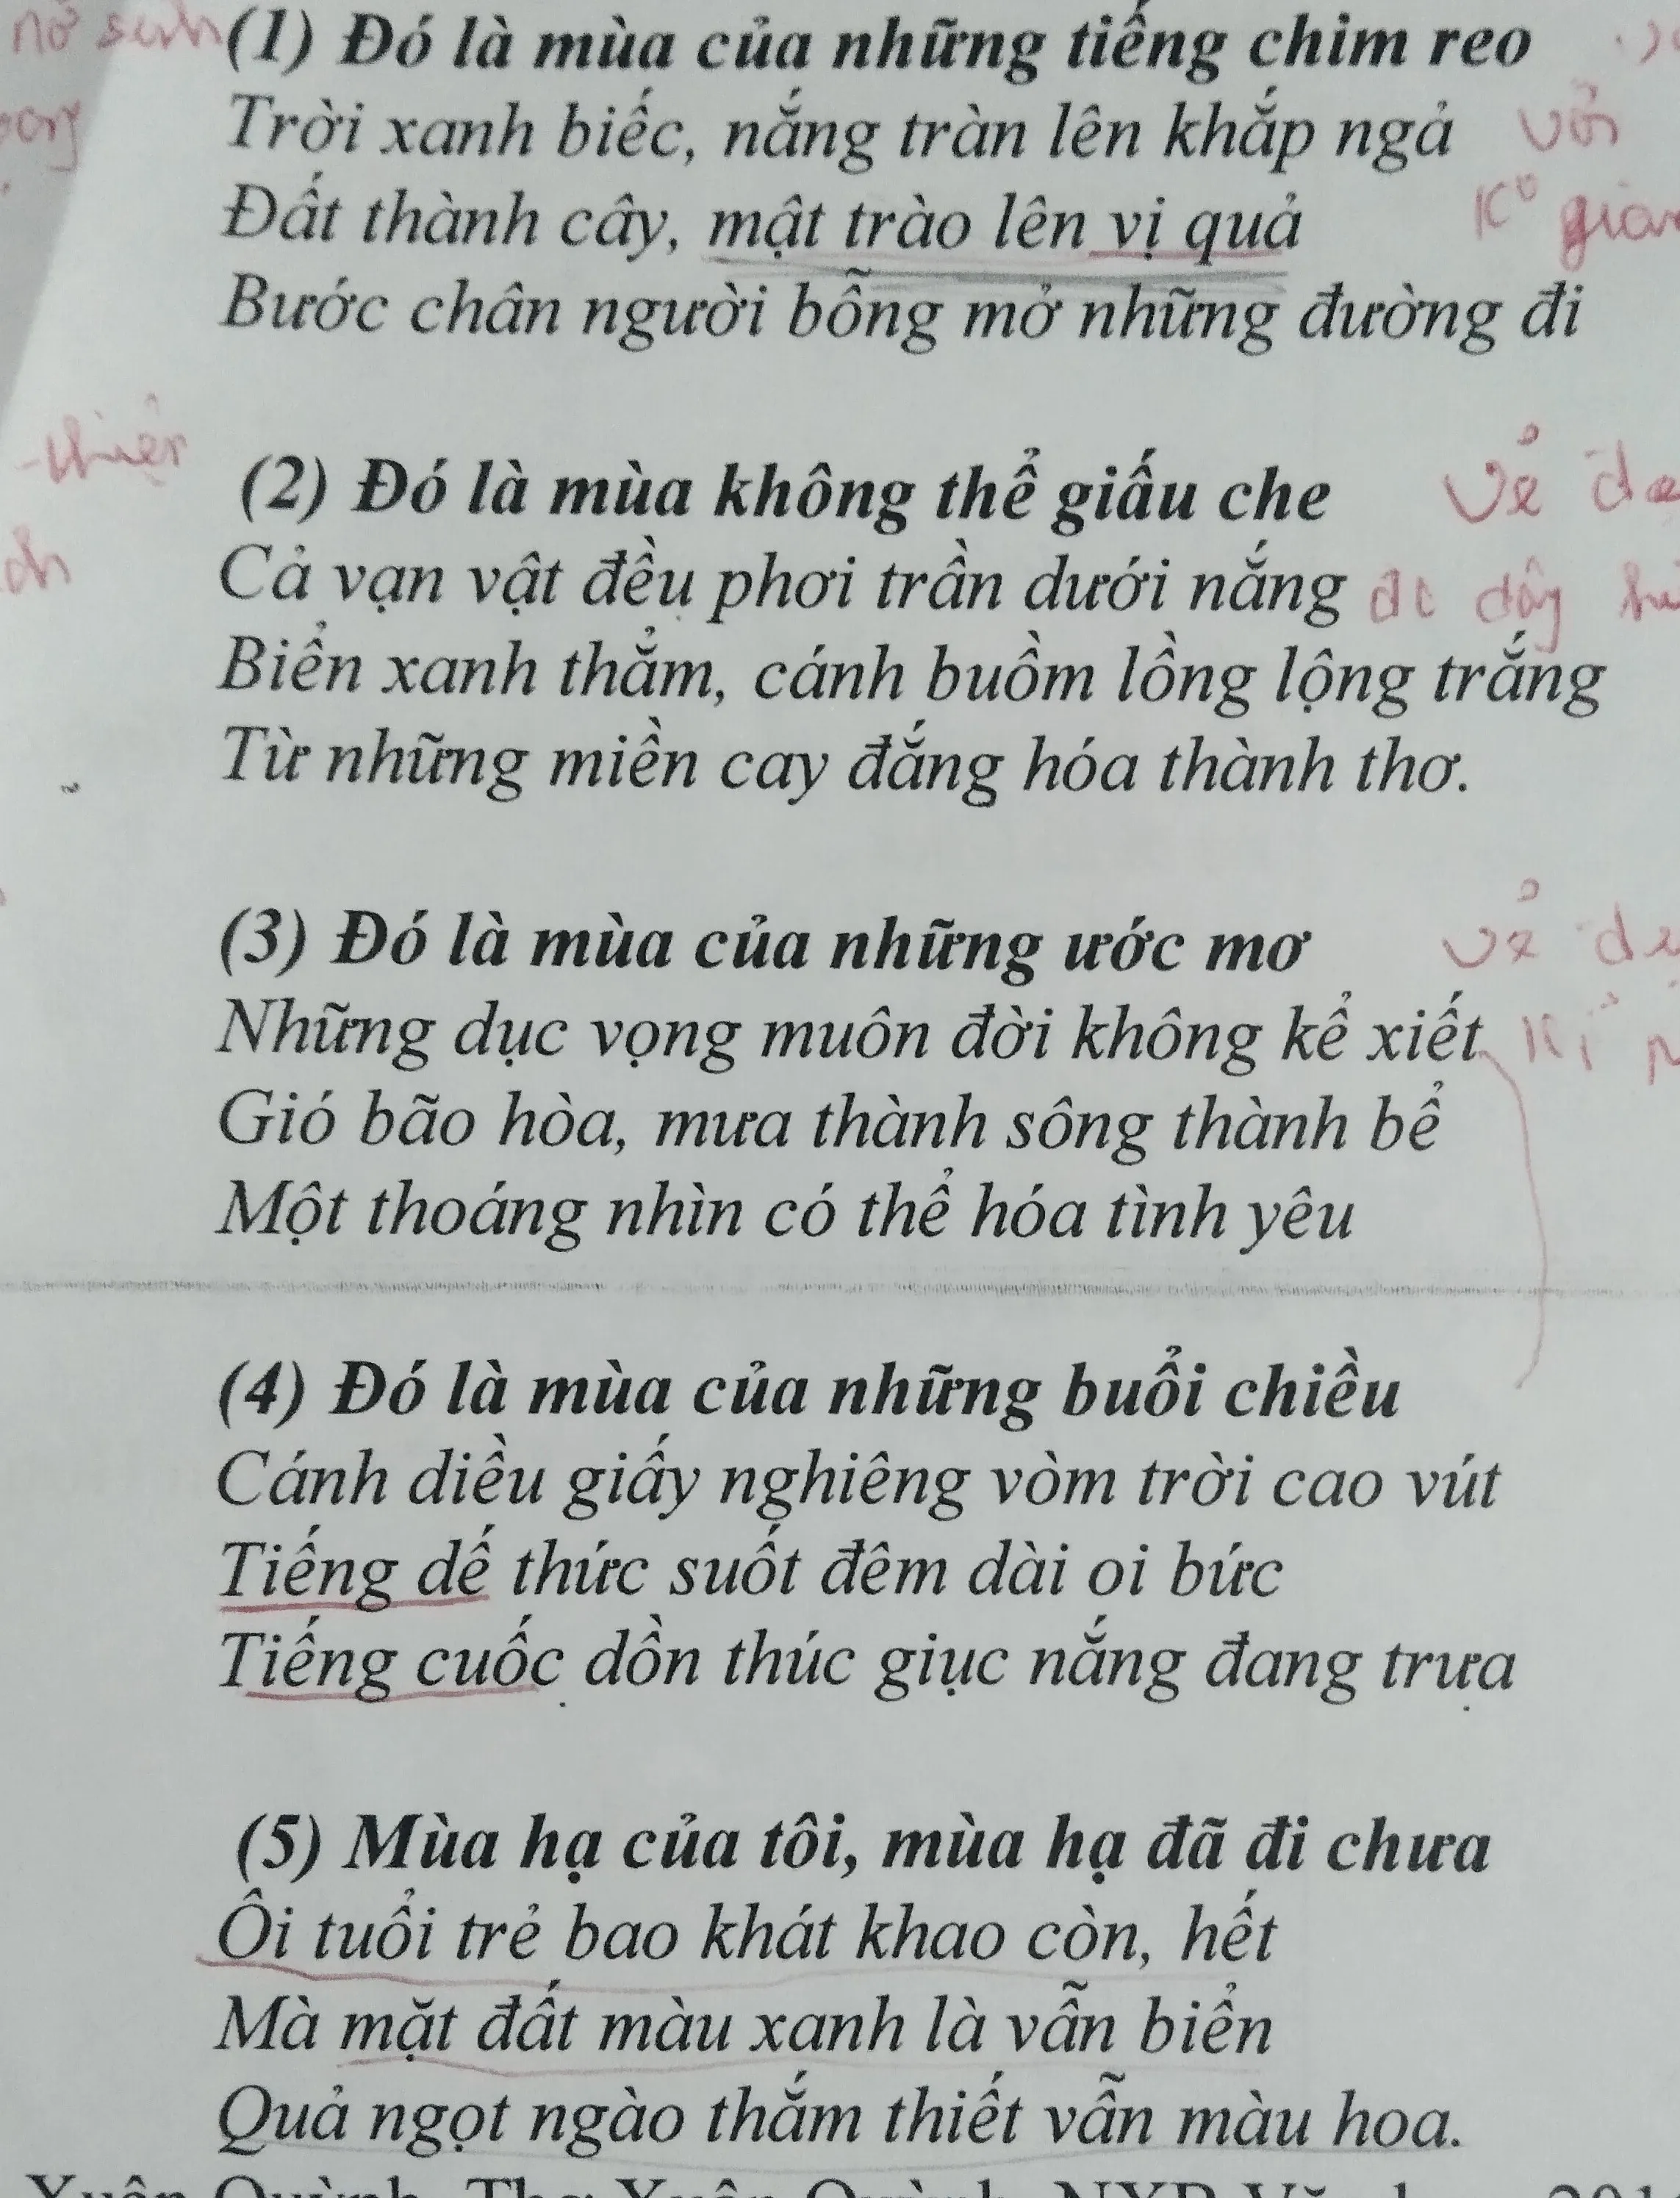 nở sinh (1) Đó là mùa của những tiếng chim reo
Trời xanh biếc, nắng tràn lên khắp ngả với
Đất thành cây, mật trào lên vị quả K° gian
Bước chân người bỗng mở những đường đi
-thiên (2) Đó là mùa không thể giấu che Vẻ
Cả vạn vật đều phơi trần dưới nắng
Biển xanh thẳm, cánh buồm lồng lộng trắng
Từ những miền cay đắng hóa thành thơ.
(3) Đó là mùa của những ước mơ Vẻ
Những dục vọng muôn đời không kể xiết
Gió bão hòa, mưa thành sông thành bể
Một thoáng nhìn có thể hóa tình yêu
(4) Đó là mùa của những buổi chiều
Cánh diều giấy nghiêng vòm trời cao vút
Tiếng dế thức suốt đêm dài oi bức
Tiếng cuốc dồn thúc giục nắng đang trưa
(5) Mùa hạ của tôi, mùa hạ đã đi chưa
Ôi tuổi trẻ bao khát khao còn, hết
Mà mặt đất màu xanh là vẫn biển
Quả ngọt ngào thắm thiết vẫn màu hoa.
Xuân Quỳnh, Thơ Xuân Quỳnh, NXB Văn